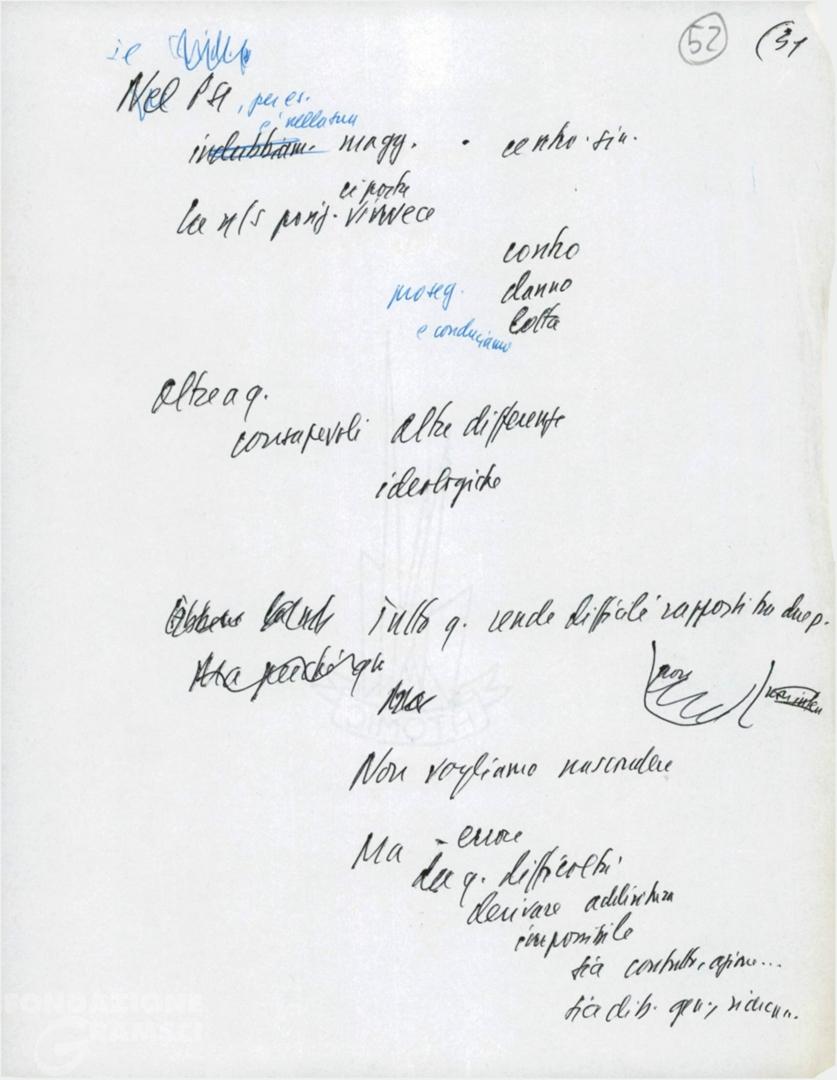 52 (31
il
Nel Psi, per es.
è nella sua
indubbiam. magg. centro-sin.
ci porta
La ns posiz. viivece
contro
proseg. danno
e conduciamo lotta
Oltre a q.
consapevoli altre differenze
ideologiche
Tutto q. rende difficile rapporti tra due p.
Ma perché qu
Ma
non
Non vogliamo nascondere
Ma - errore
da q. difficoltà
derivare addirittura
impossibile
sia contatti, azione...
sia dib. gen., vicen.
FONDAZIONE
GRAMSCI